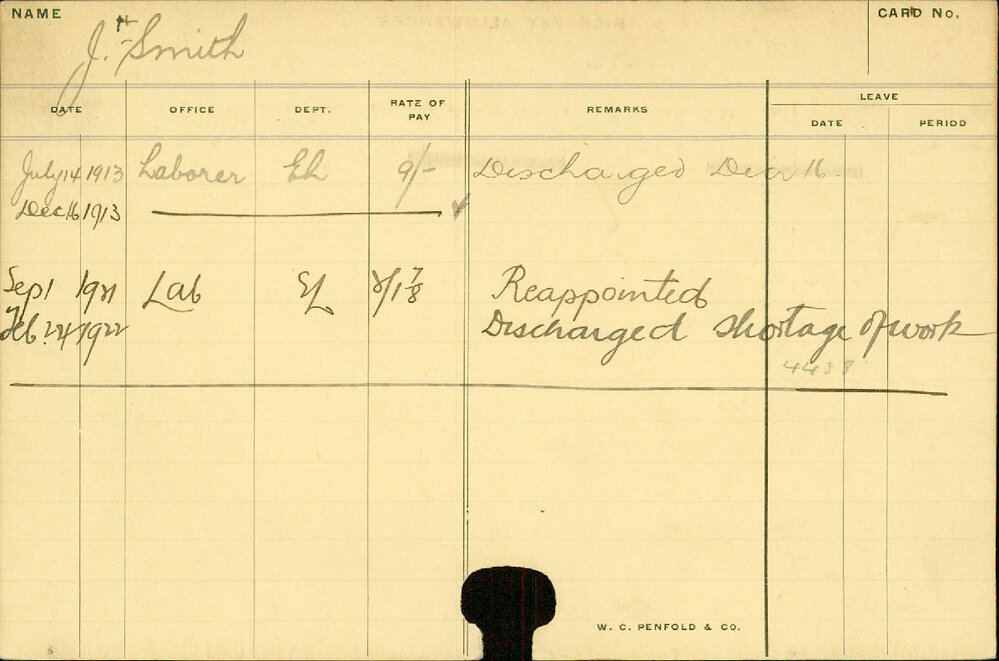 NAME
CARD No.
J. H Smith
DATE OFFICE DEPT. RATE OF PAY REMARKS LEAVE
DATE PERIOD
July 14 1913 Laborer EL 9/- Discharged Dec 16
Dec 16 1913
Sept 1 1921 Lab EL Reappointed
Feb. 24 1922 Discharged shortage of work
W. C. PENFOLD & CO.